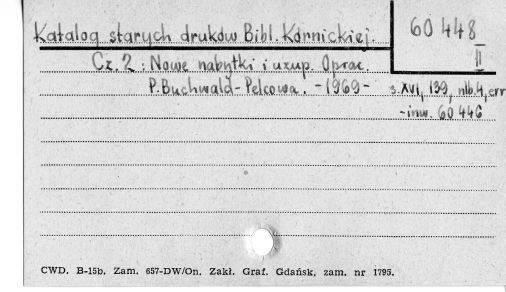 Katalog starych druków Bibl. Kórnickiej.
60 448
II
Cz. 2: Nowe nabytki i uzup. Oprac.
P. Buchwald-Pelcowa. -1969-
s. XVI, 139, nlb. 4, err
-inw. 60 446
CWD. B-15b. Zam. 657-DW/On. Zakł. Graf. Gdańsk, zam. nr 1795.